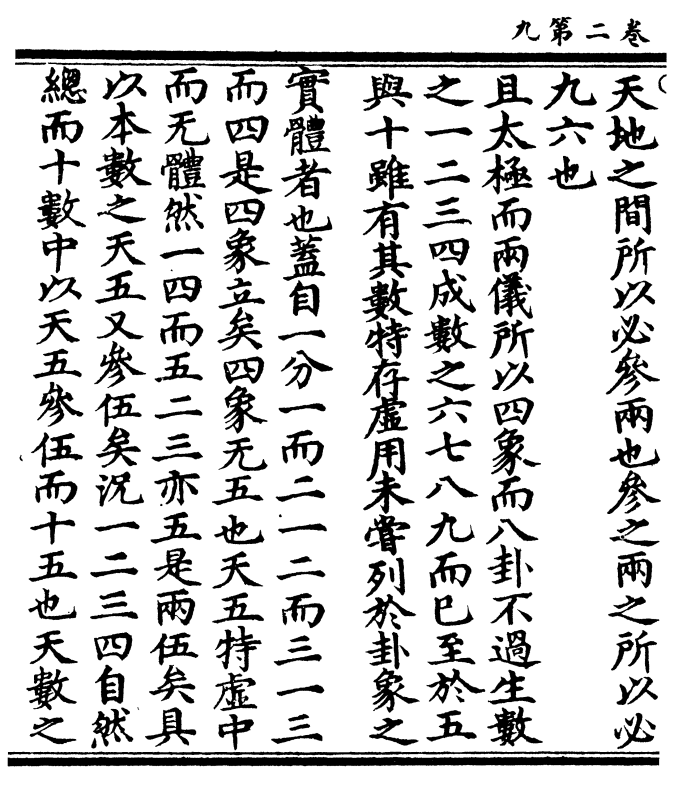 九第二卷
天地之間所以必參兩也參之兩之所以必
九六也
且太極而兩儀所以四象而八卦不過生數
之一二三四成數之六七八九而已至於五
與十雖有其數特存虛用未嘗列於卦象之
實體者也蓋自一分一而二一二而三一三
而四是四象立矣四象无五也天五特虛中
而无體然一四而五二三亦五是兩伍矣具
以本數之天五又參伍矣況一二三四自然
總而十數中以天五參伍而十五也天數之